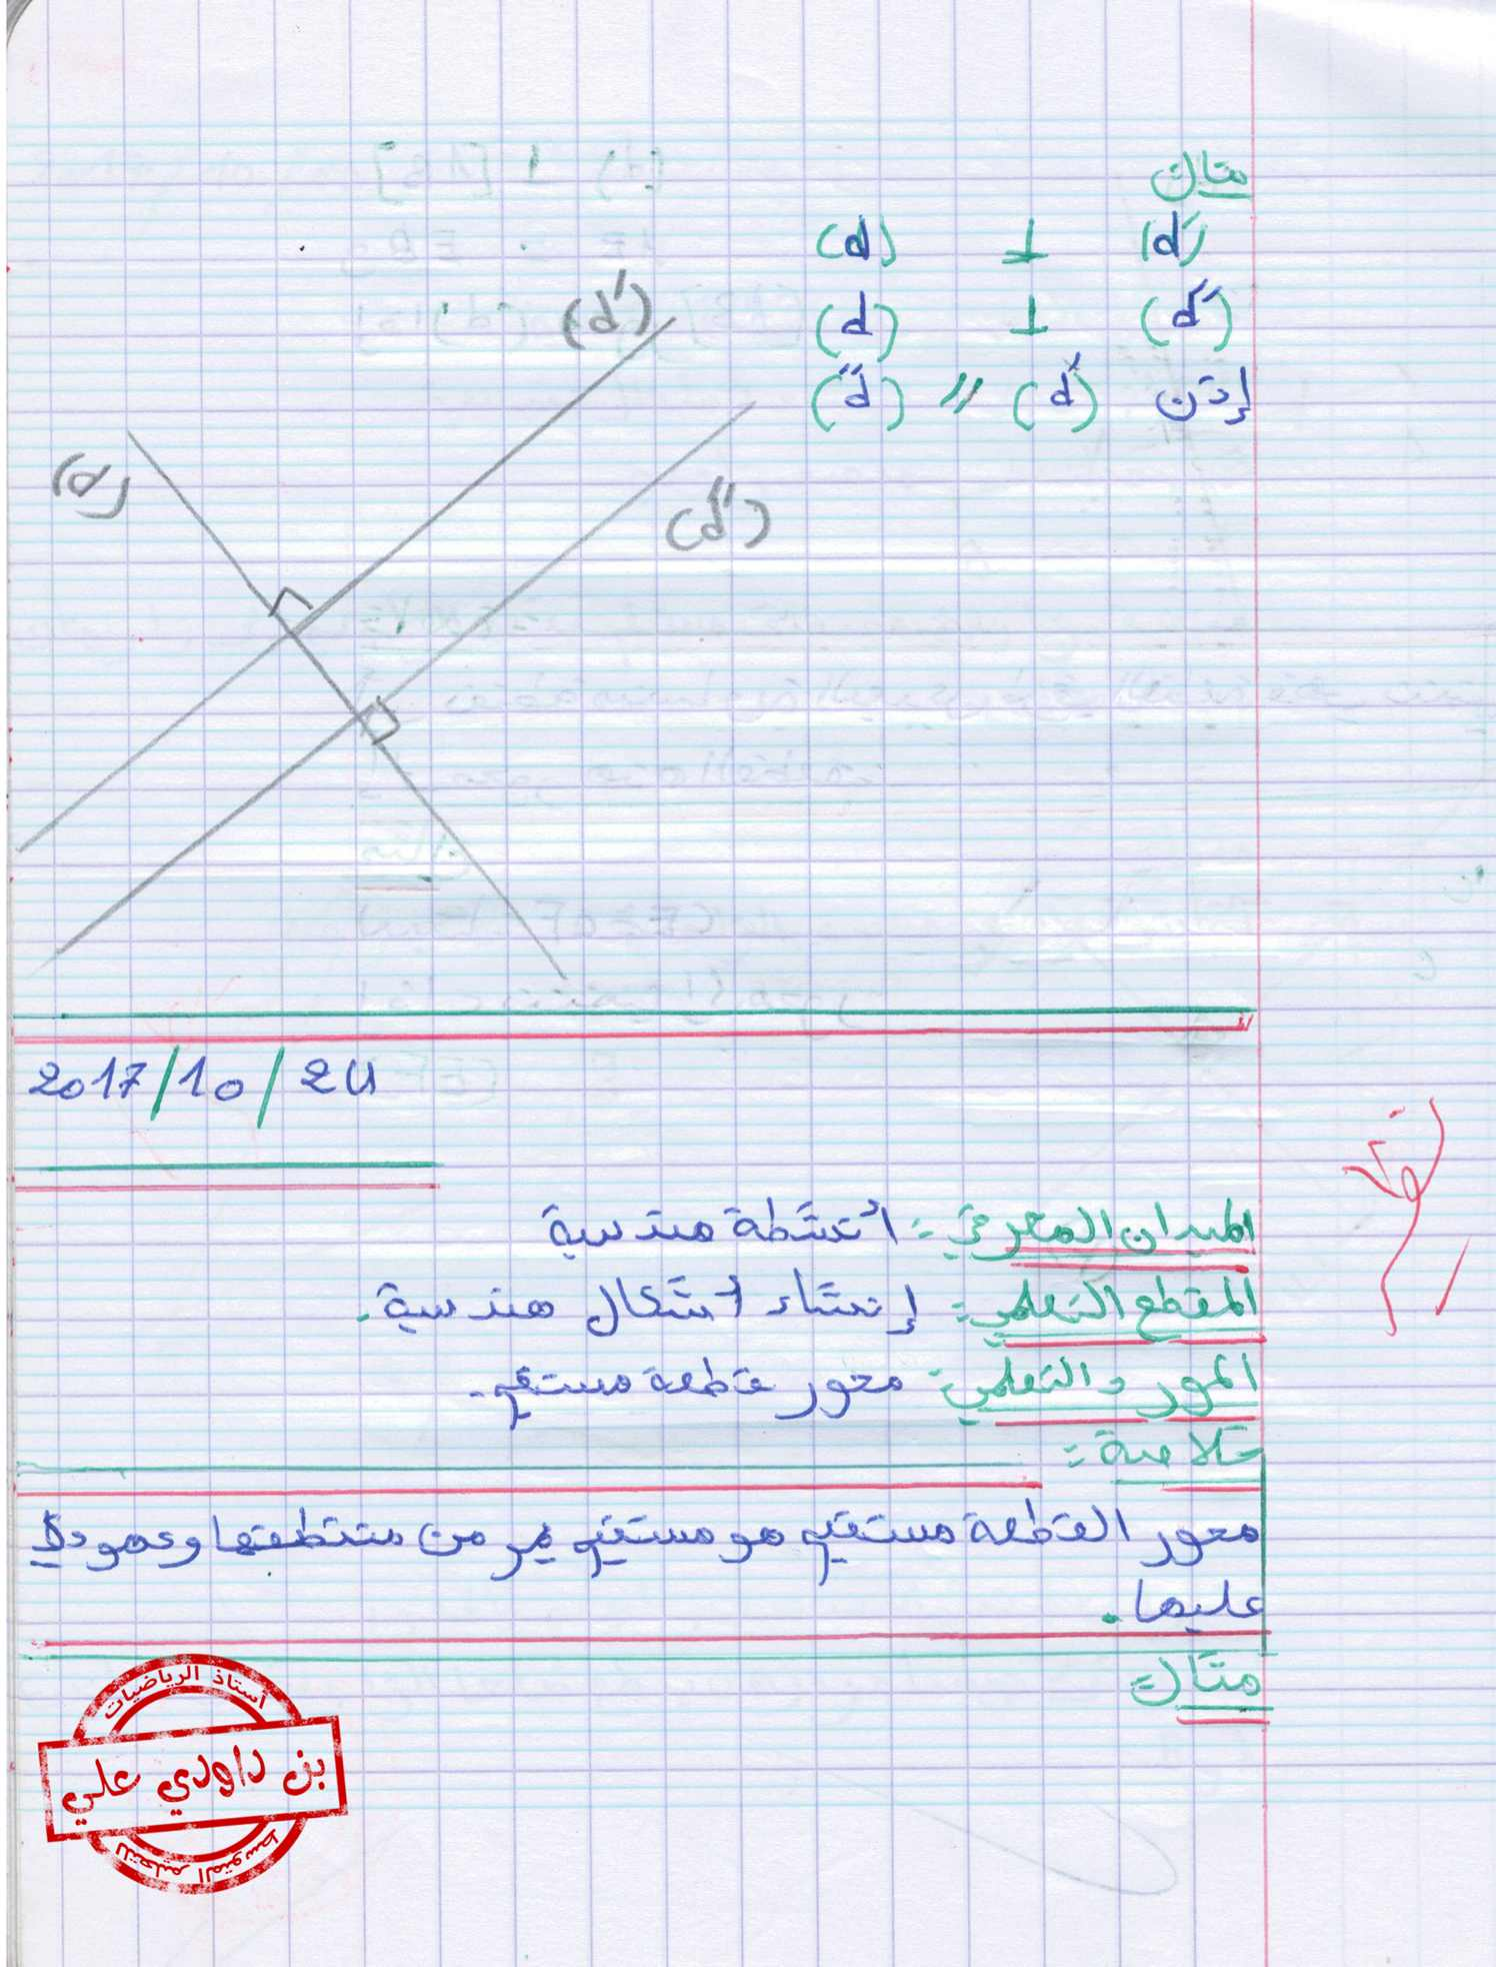 مثال
(d') ⊥ (d)
(d'') ⊥ (d)
إذن (d') // (d'')
(d')
(d)
(d'')
2017/10/24
الميدان المعرفي: أنشطة هندسية
المقطع التعلمي: إنشاء أشكال هندسية.
المورد التعلمي: محور قطعة مستقيم.
خلاصة:
محور القطعة مستقيم هو مستقيم يمر من منتطفها وعمودي
عليها.
مثال:
أستاذ الرياضيات
بن داودي علي
للتعليم المتوسط